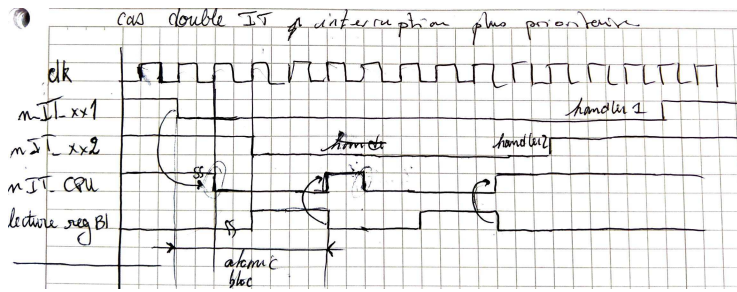 cas double IT interruption plus prioritaire
clk
nIT_xx1
handler 1
nIT_xx2
handler2
nIT_CPU
lecture reg BI
atomic
bloc